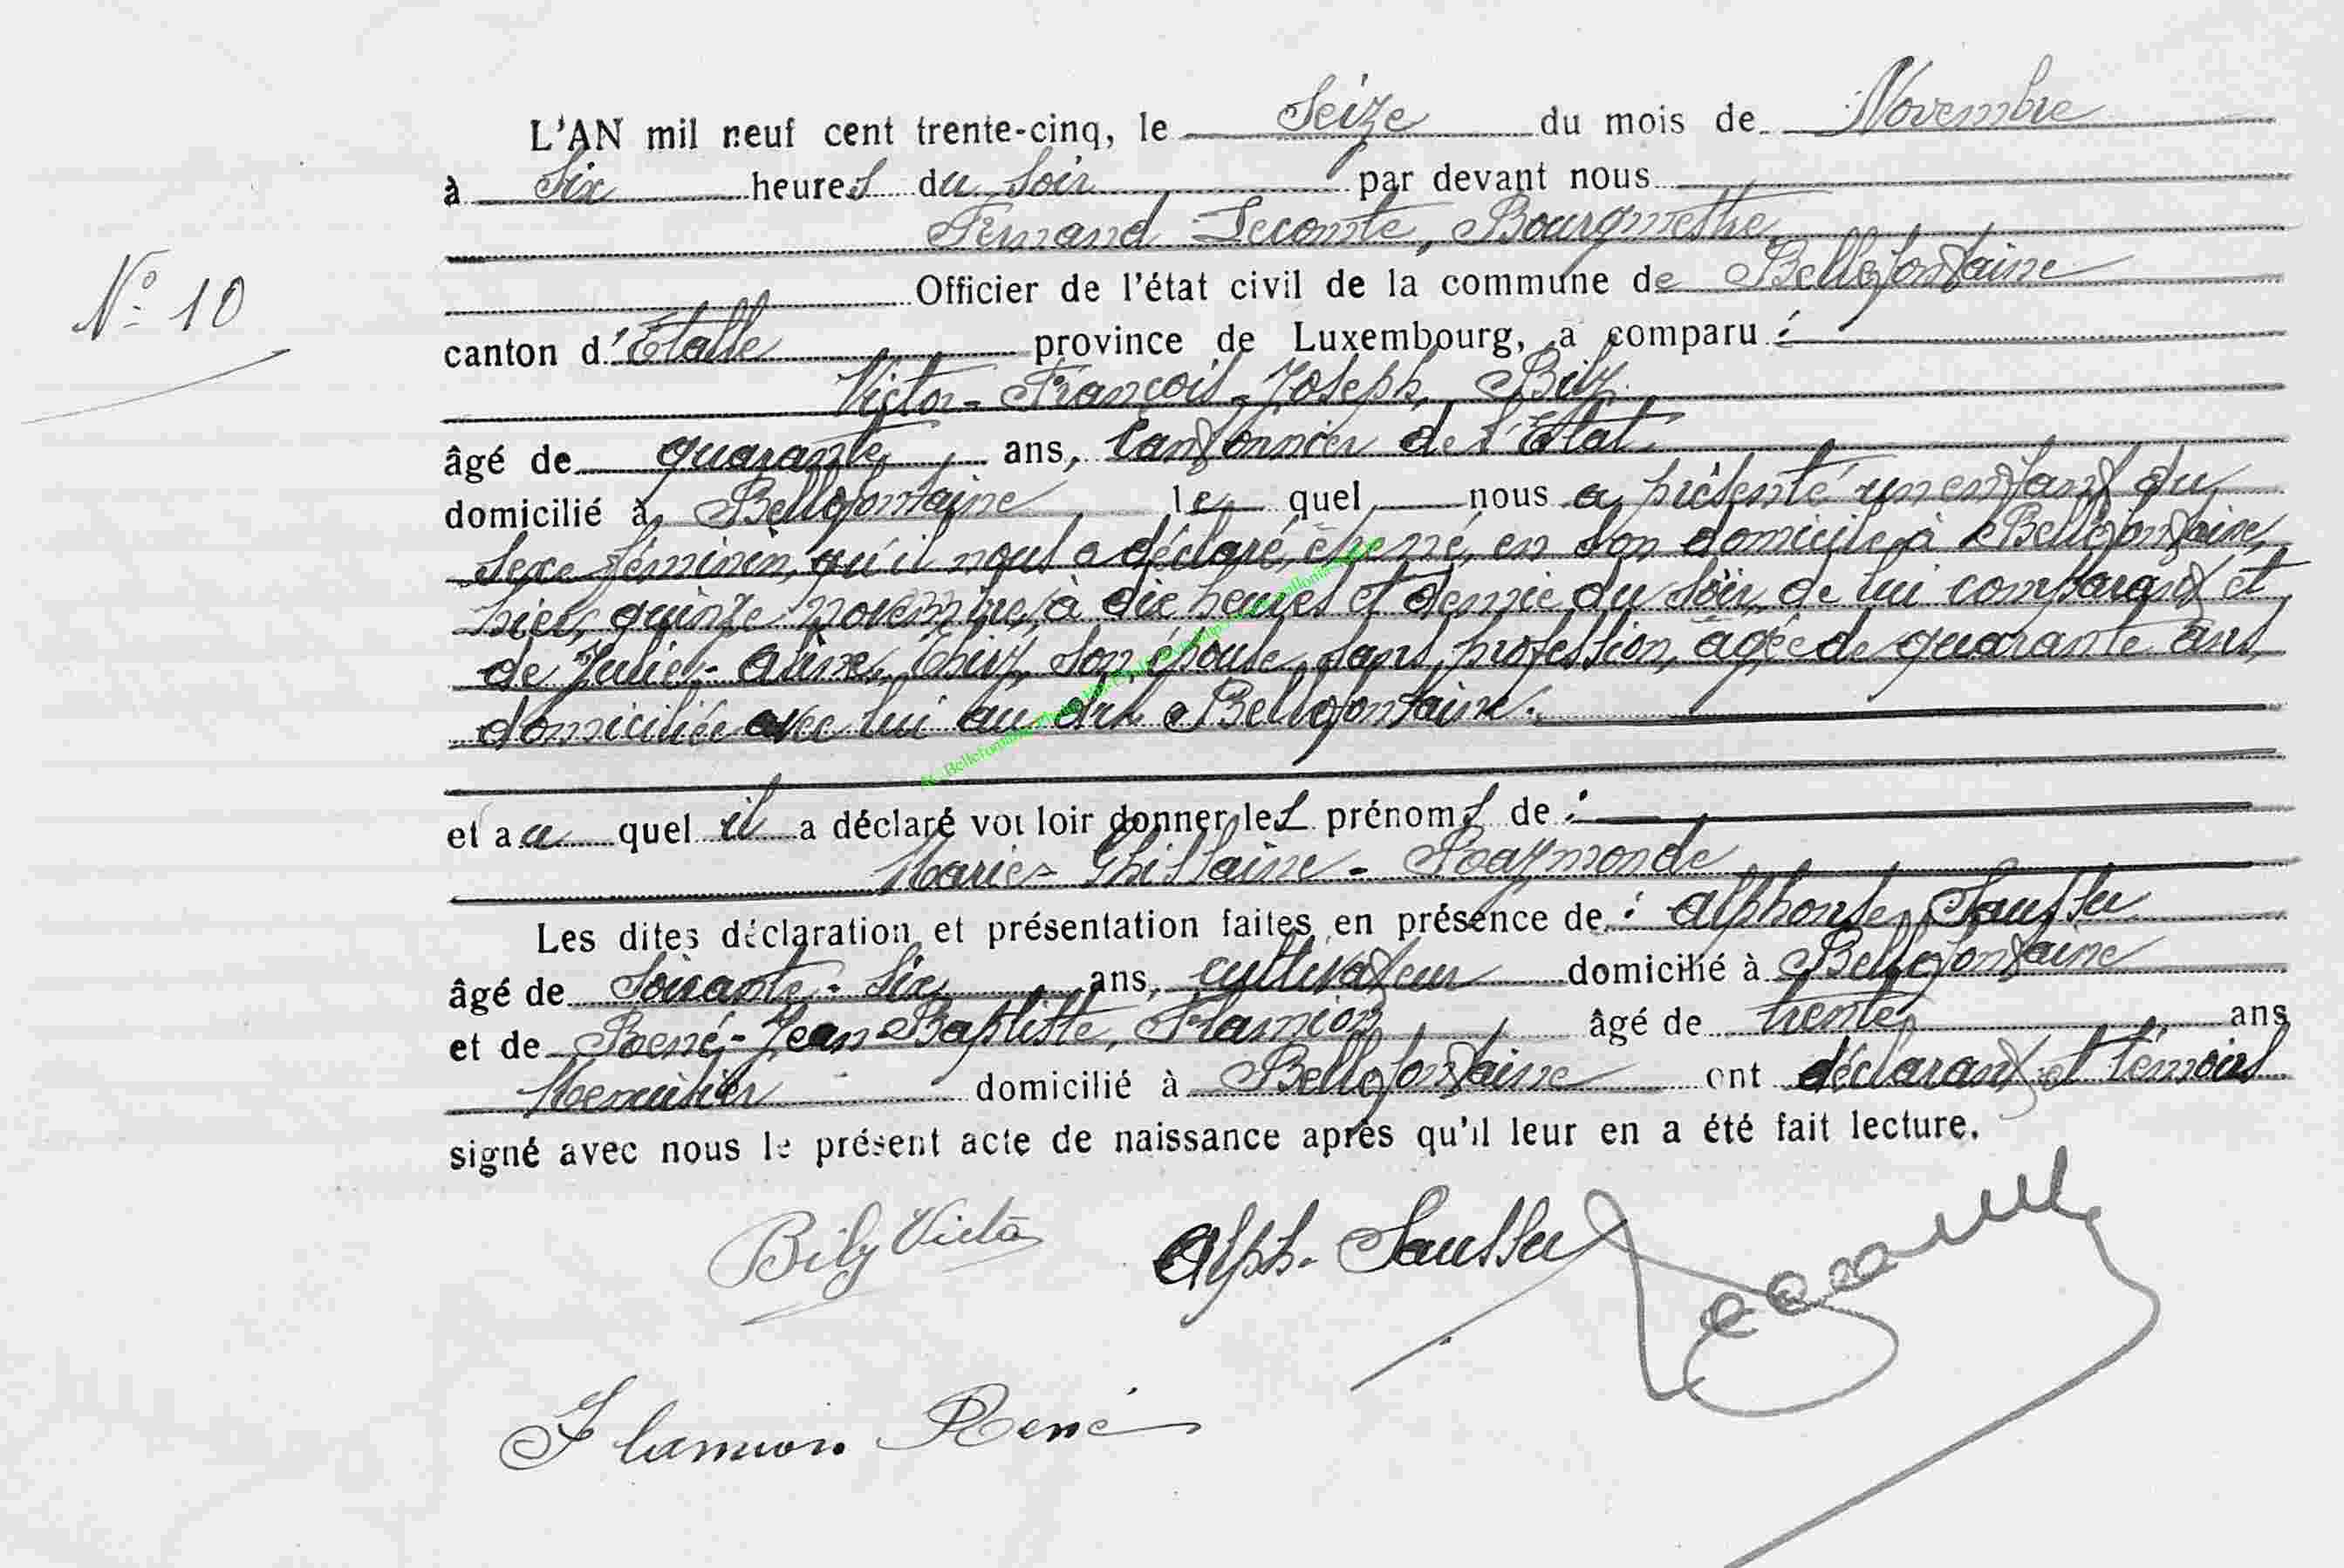 L'AN mil neuf cent trente-cinq, le Seize du mois de Novembre
à Six heures du soir par devant nous
Fernand Lecomte, Bourgmestre,
Officier de l'état civil de la commune de Bellefontaine
N° 10
canton d'Etalle province de Luxembourg, a comparu :
Victor-François-Joseph, Bily
âgé de quarante ans, Cantonnier de l'Etat,
domicilié à Bellefontaine le quel nous a présenté un enfant du
sexe féminin, qu'il nous a déclaré, être né, en son domicile, à Bellefontaine,
hier, quinze novembre, à dix heures et demie du soir, de lui comparant et
de Julie-Aline, Thiry, son épouse, sans profession, âgée de quarante ans,
domiciliée avec lui au dit Bellefontaine.
et au quel il a déclaré vouloir donner les prénoms de :
Marie-Ghislaine-Raymonde
Les dites déclaration et présentation faites en présence de : Alphonse, Saussu
âgé de soixante-six ans, cultivateur domicilié à Bellefontaine
et de René-Jean-Baptiste, Flamion âgé de trente, ans
Menuisier domicilié à Bellefontaine ont déclarant et témoins
signé avec nous le présent acte de naissance après qu'il leur en a été fait lecture.
Bily Victor Alph. Saussu
Flamion René